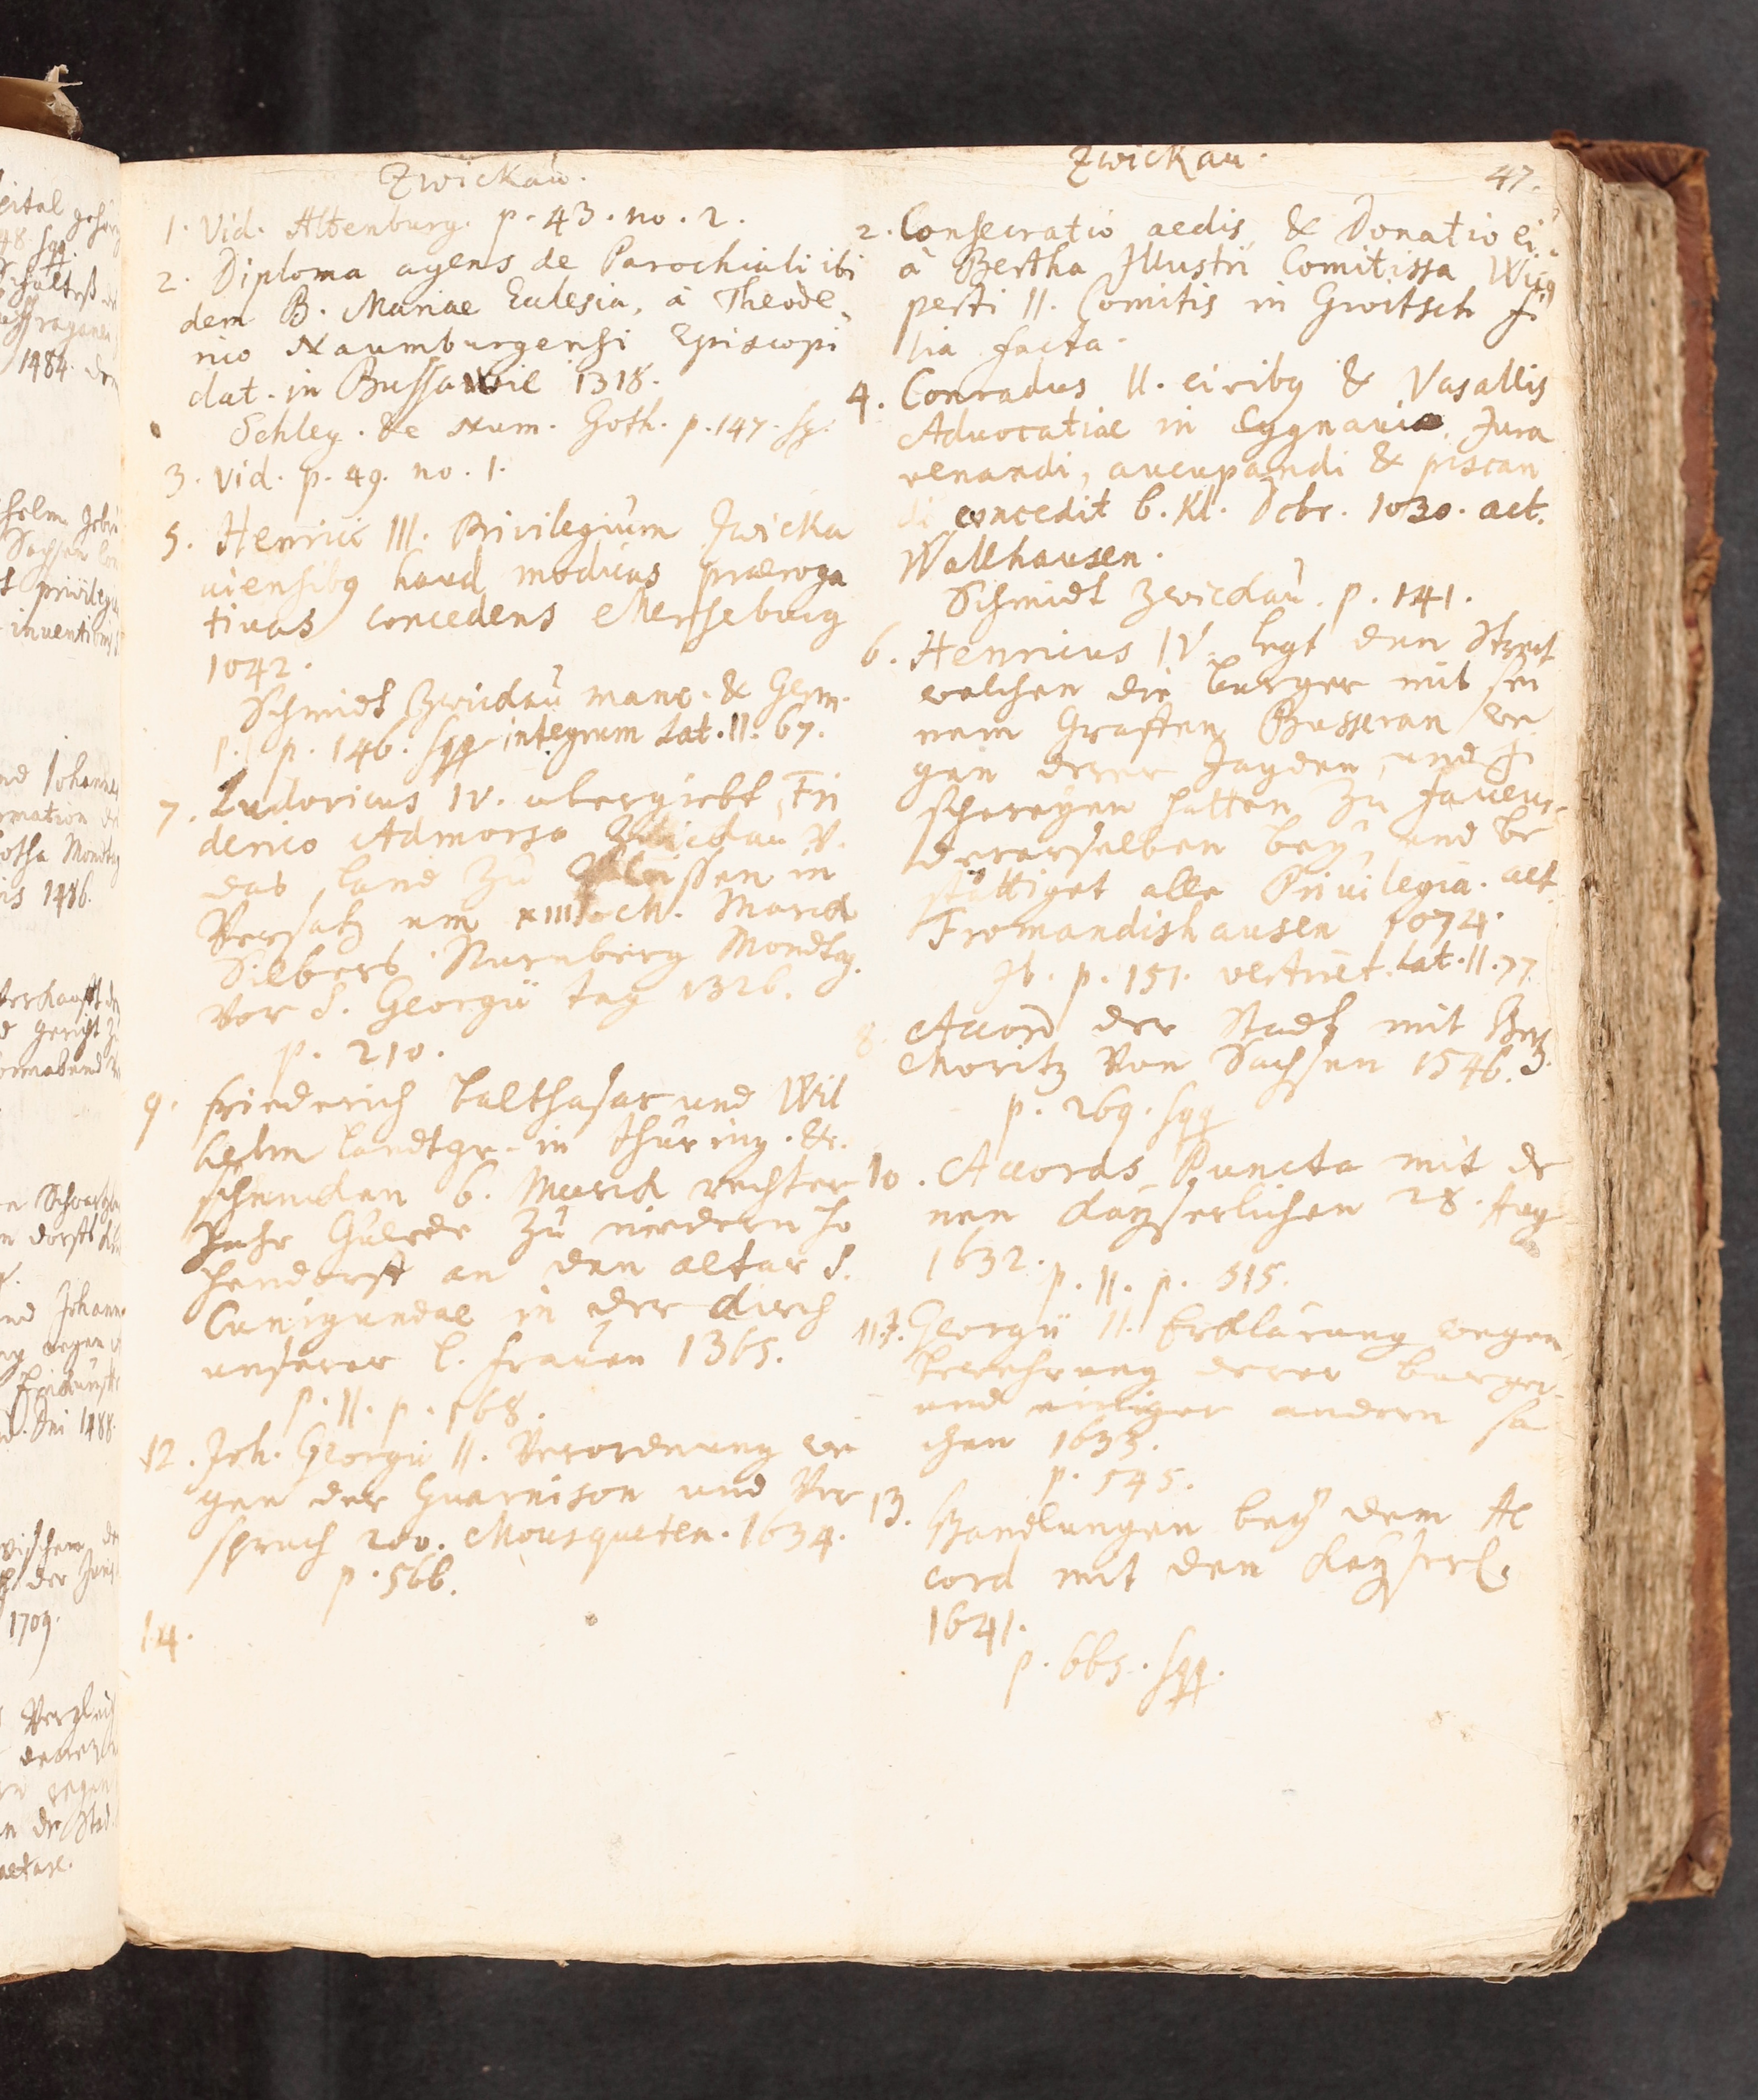 Zwickau.
1. Vid. Altenburg. p. 43. no. 2.
2. Diploma agens de Parochiali ibi
dem B. Mariae Eclesia, à Theode-
rico Naumburgensi Episcopi
dat. in 1318.
Schleg. de Num. Goth. p. 147. sq.
3. Vid. p. 49. no. 1.
5. Henrici III. Privilegium Zwicka
viensibq haud modicas praeroga
tivas concedens Merseburg
1042.
Schmidt Zwickau manc. & Germ.
p. I p. 146. sqq integrum Lat. II. 67.
7. Ludovicus IV. ubergiebt Fri
derico Admorso Zwickau v.
das Land zu Pleissen in
Versatz um Marck
Silbers Nurnberg Mondtag
vor S. Georgii tag 1326.
p. 210.
9. friederich balthasar und Wil
helm Landtgr. in thuring. &c.
schencken 6. Marck rechter
Jahr Gulede zu niedern Ho
hendorff an den altar S.
Cunigundae in der kirch
unserer l. frauen 1365.
p. II. p. 168.
12. Joh. Georgii II. Verordnung we
gen der Guarnison und Ver
spruch 200. Mousqueten. 1634.
p. 566.
14.
Zwickau.
47.
2. Consecratio aedis & Donatio ei
à Bertha Illustri Comitissa Wig
perti II. Comitis in Groitsch fi
lia facta.
4. Conradus II. civibq & Vasallis
Advocatiae in Cygnavia Jura
venandi, aucupandi & piscan
di concedit 6. Kl. Dcbr. 1030. act.
Wallhausen.
Schmidt Zwickau. p. 141.
6. Henricus IV. legt den Streit
welchen die burger mit sei
nem Graffen Busseran we
gen derer Jagden und fi
schereyen hatten zu faveur
dererselben bey, und be
stättiget alle Privilegia. act.
Fromandishausen 1074.
Ib. p. 151. Lat. II. 77
8. Accord der Stadt mit Herz.
Moritz von Sachsen 1546.
p. 269. sqq
10. Accords Puncta mit de
nen Kayserlichen 28. Aug
1632.
p. II. p. 515.
11. J. Georgii II. Erklarung wegen
bewehrung derer burger
und einiger andern sa
chen 1633.
p. 545.
13. Handlungen bey dem Ac
cord mit den Keyserl.
1641.
p. 665. sqq.